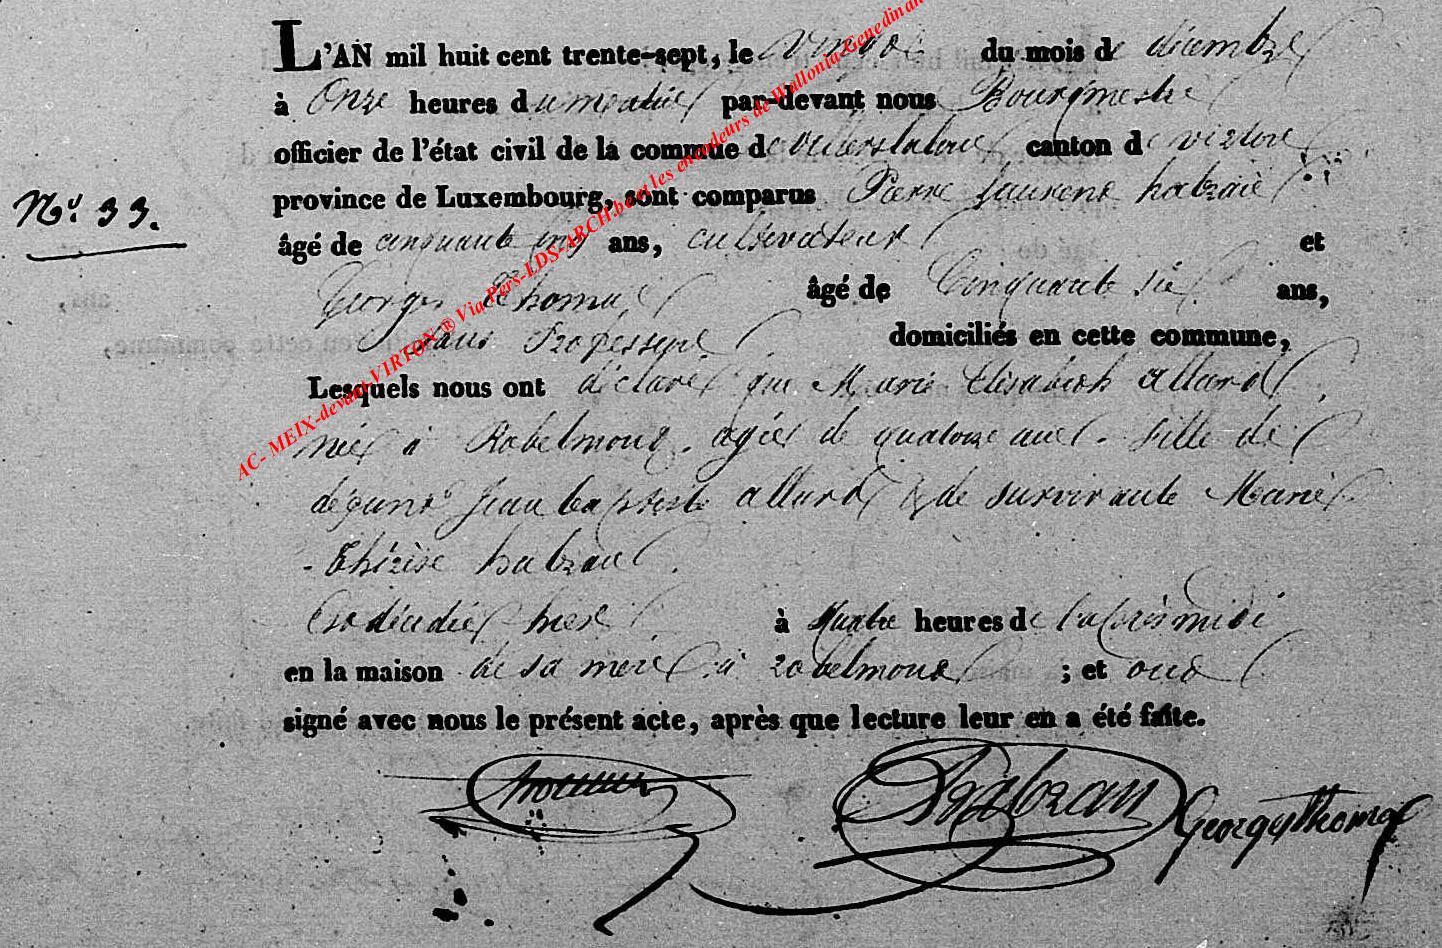 L'AN mil huit cent trente-sept, le vingt du mois de décembre
à Onze heures du matin par-devant nous Bourgmestre
officier de l'état civil de la commue de villers la loue canton de virton
province de Luxembourg, sont comparus Pierre Laurent habran
N.º 33.
âgé de cinquante cinq ans, cultivateur et
Georges Thomas âgé de Cinquante six ans,
sans Profession domiciliés en cette commune,
Lesquels nous ont déclaré que Marie Elisabeth allard
née à Robelmont. agée de quatorze ans. fille de
défunt Jean baptiste allard & de survivante Marie
- Thérèse habran.
est décédée hier à quatre heures de l'après midi
en la maison de sa mere à robelmont ; et ont
signé avec nous le présent acte, après que lecture leur en a été faite.
Habran
Georges Thomas
AC- MEIX-devant-VIRTON ® Via Pers-LDS-ARCH.be et les encodeurs de Wallonia-Genedinan